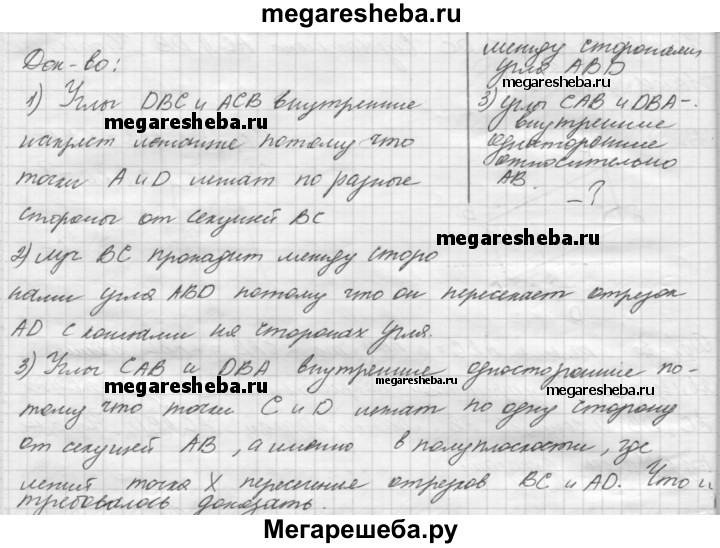 megaresheba.ru
Док-во:
1) Углы DBC и ACB внутренние
megaresheba.ru
накрест лежащие потому что
точки A и D лежат по разные
стороны от секущей BC
между сторонами
угла ABD
megaresheba.ru
3) углы CAB и DBA -
внутренние
односторонние
megaresheba.ru
относительно
AB.
-?
megaresheba.ru
2) луч BC проходит между сторо
нами угла ABD потому что он пересекает отрезок
AD с концами на сторонах угля.
3) Углы CAB и DBA внутренние односторонние по-
megaresheba.ru megaresheba.ru megaresheba.ru
тому что точки C и D лежат по одну сторону
от секущей AB, а именно в полуплоскости, где
лежит точка X пересечение отрезков BC и AD. Что и
требовалось доказать.
Мегарешеба.ру